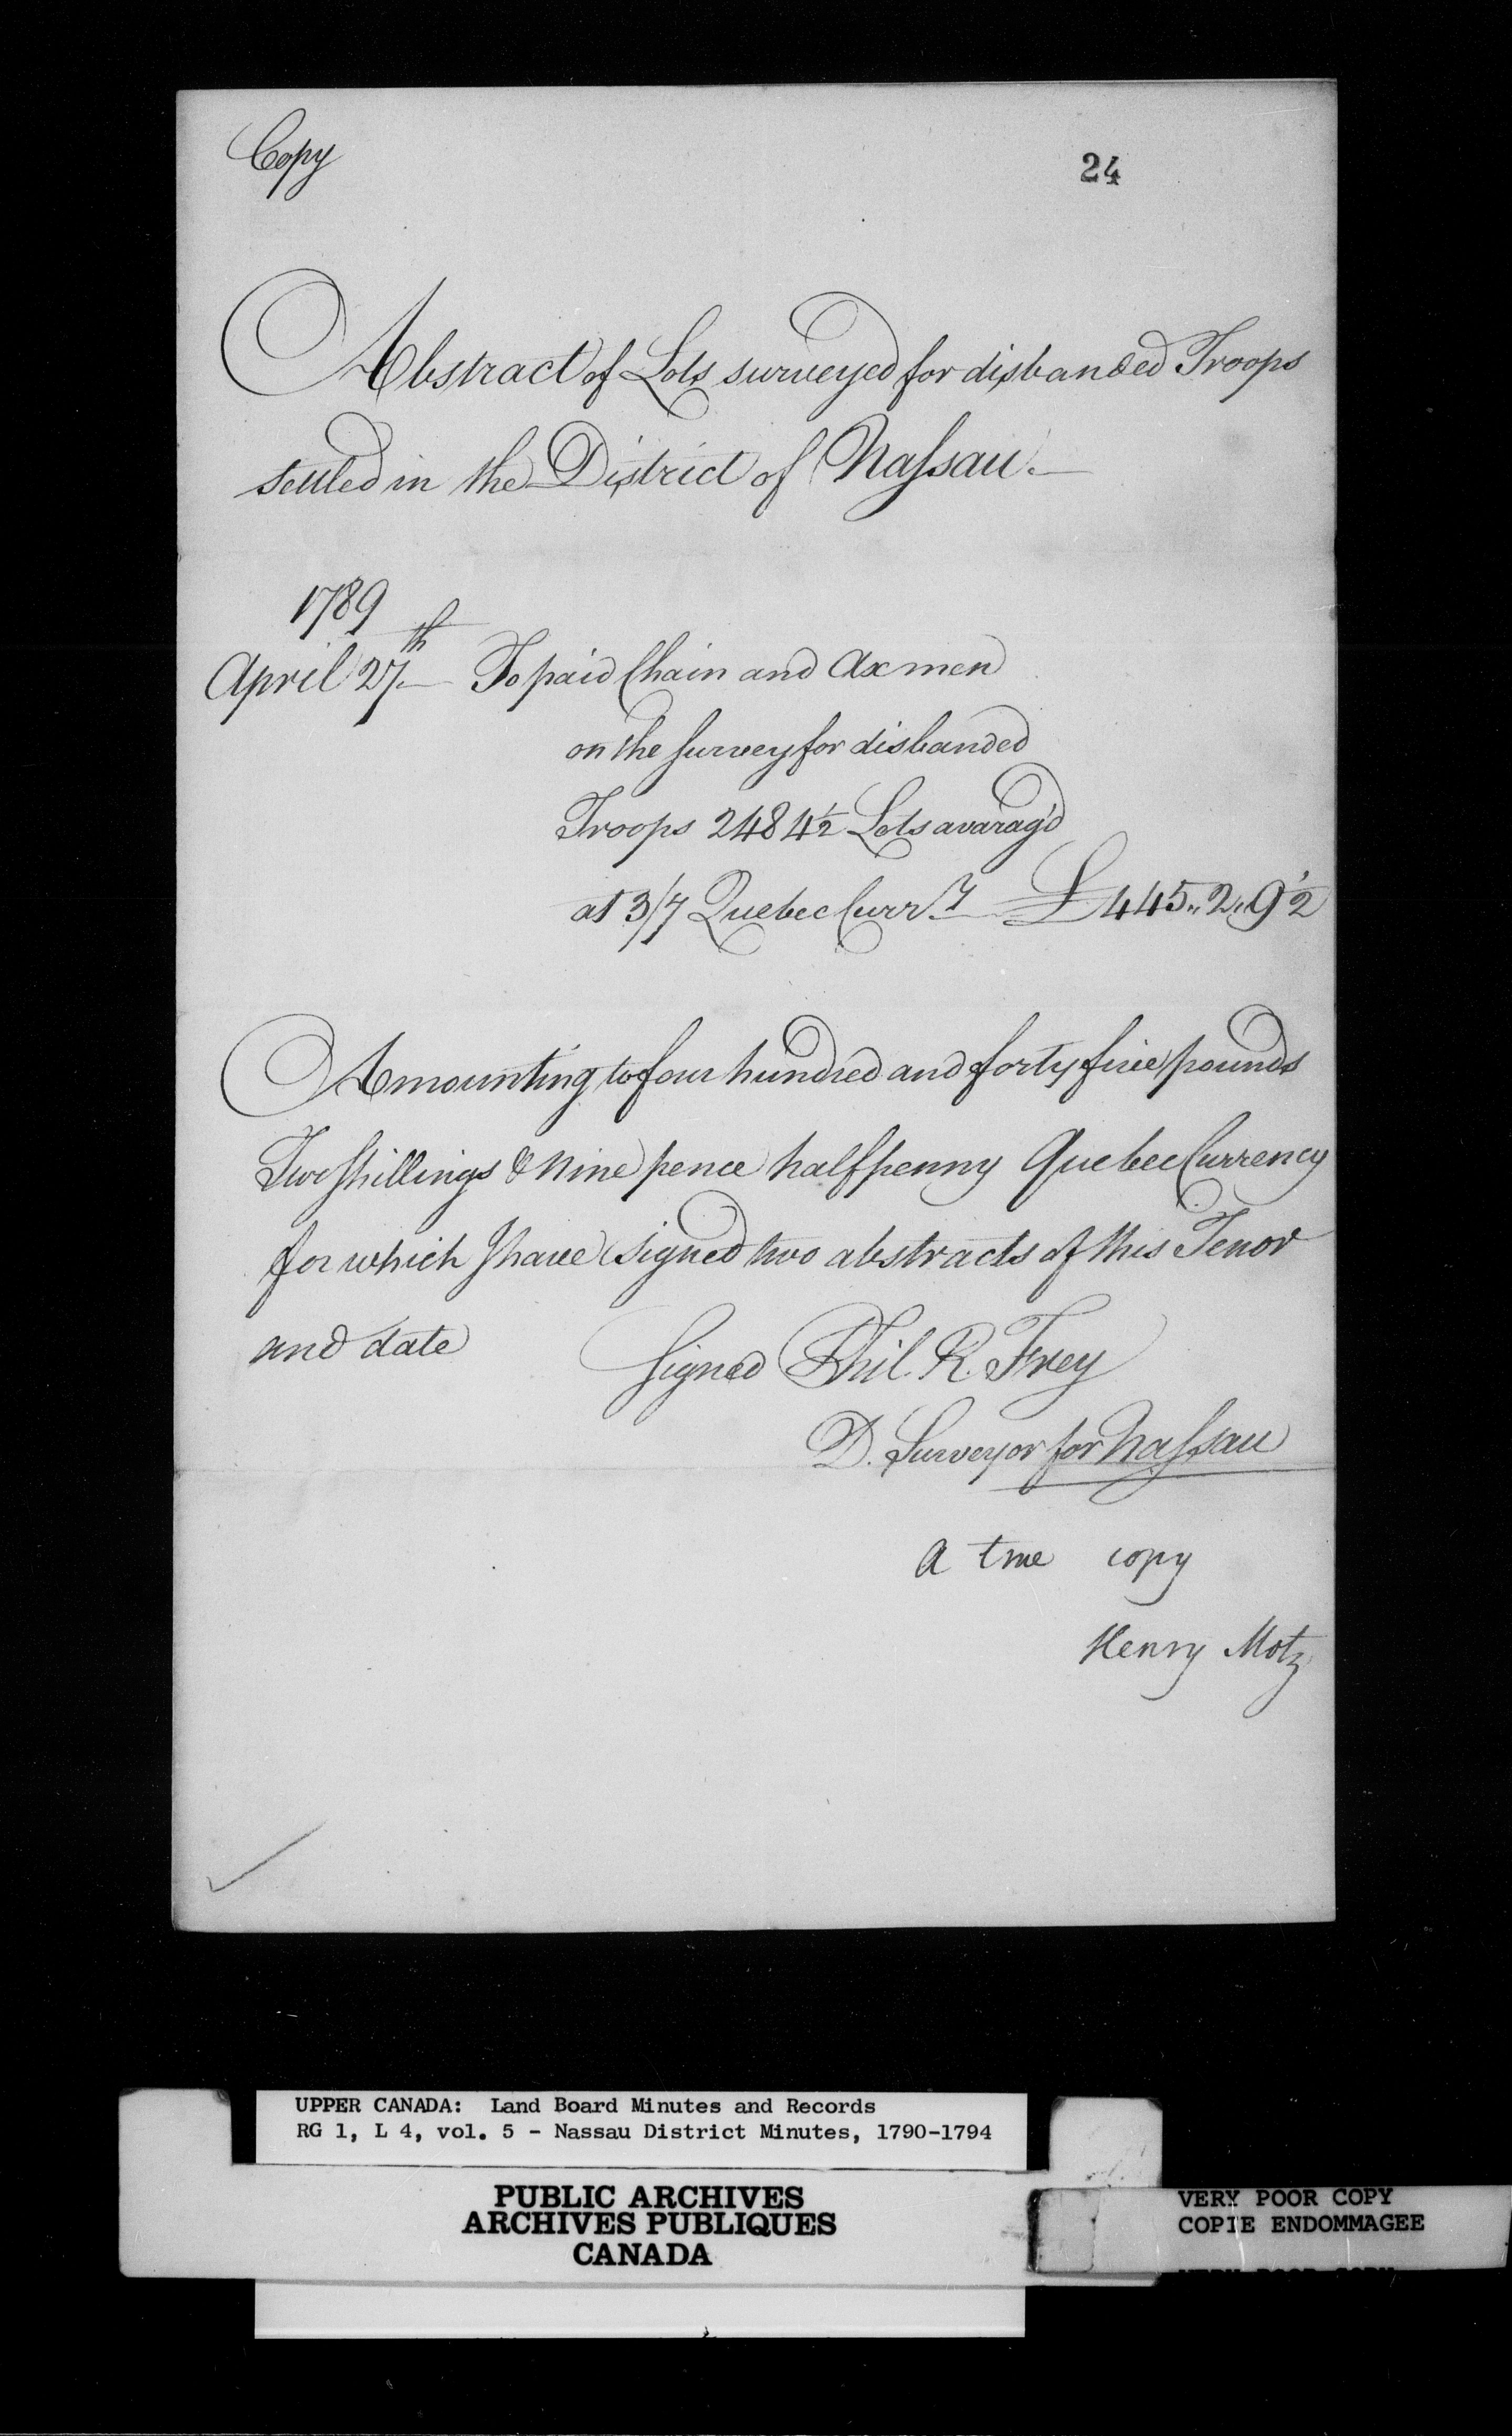 Copy
24
Abstract of Lots surveyed for disbanded Troops
settled in the District of Naſsau.
1789
April 27th To paid Chain and Axmen
on the survey for disbanded
Troops 2484½ Lots avarag'd
at 3/7 Quebec Curry £445,,2,,9½
Amounting to four hundred and forty five pounds
Two shillings & nine pence halfpenny Quebec Currency
for which I have signed two abstracts of this Tenor
and date
Signed Phil. R. Frey
D. Surveyor for Naſsau
A true copy
Henry Motz
UPPER CANADA: Land Board Minutes and Records
RG 1, L 4, vol. 5 - Nassau District Minutes, 1790-1794
PUBLIC ARCHIVES
ARCHIVES PUBLIQUES
CANADA
VERY POOR COPY
COPIE ENDOMMAGEE